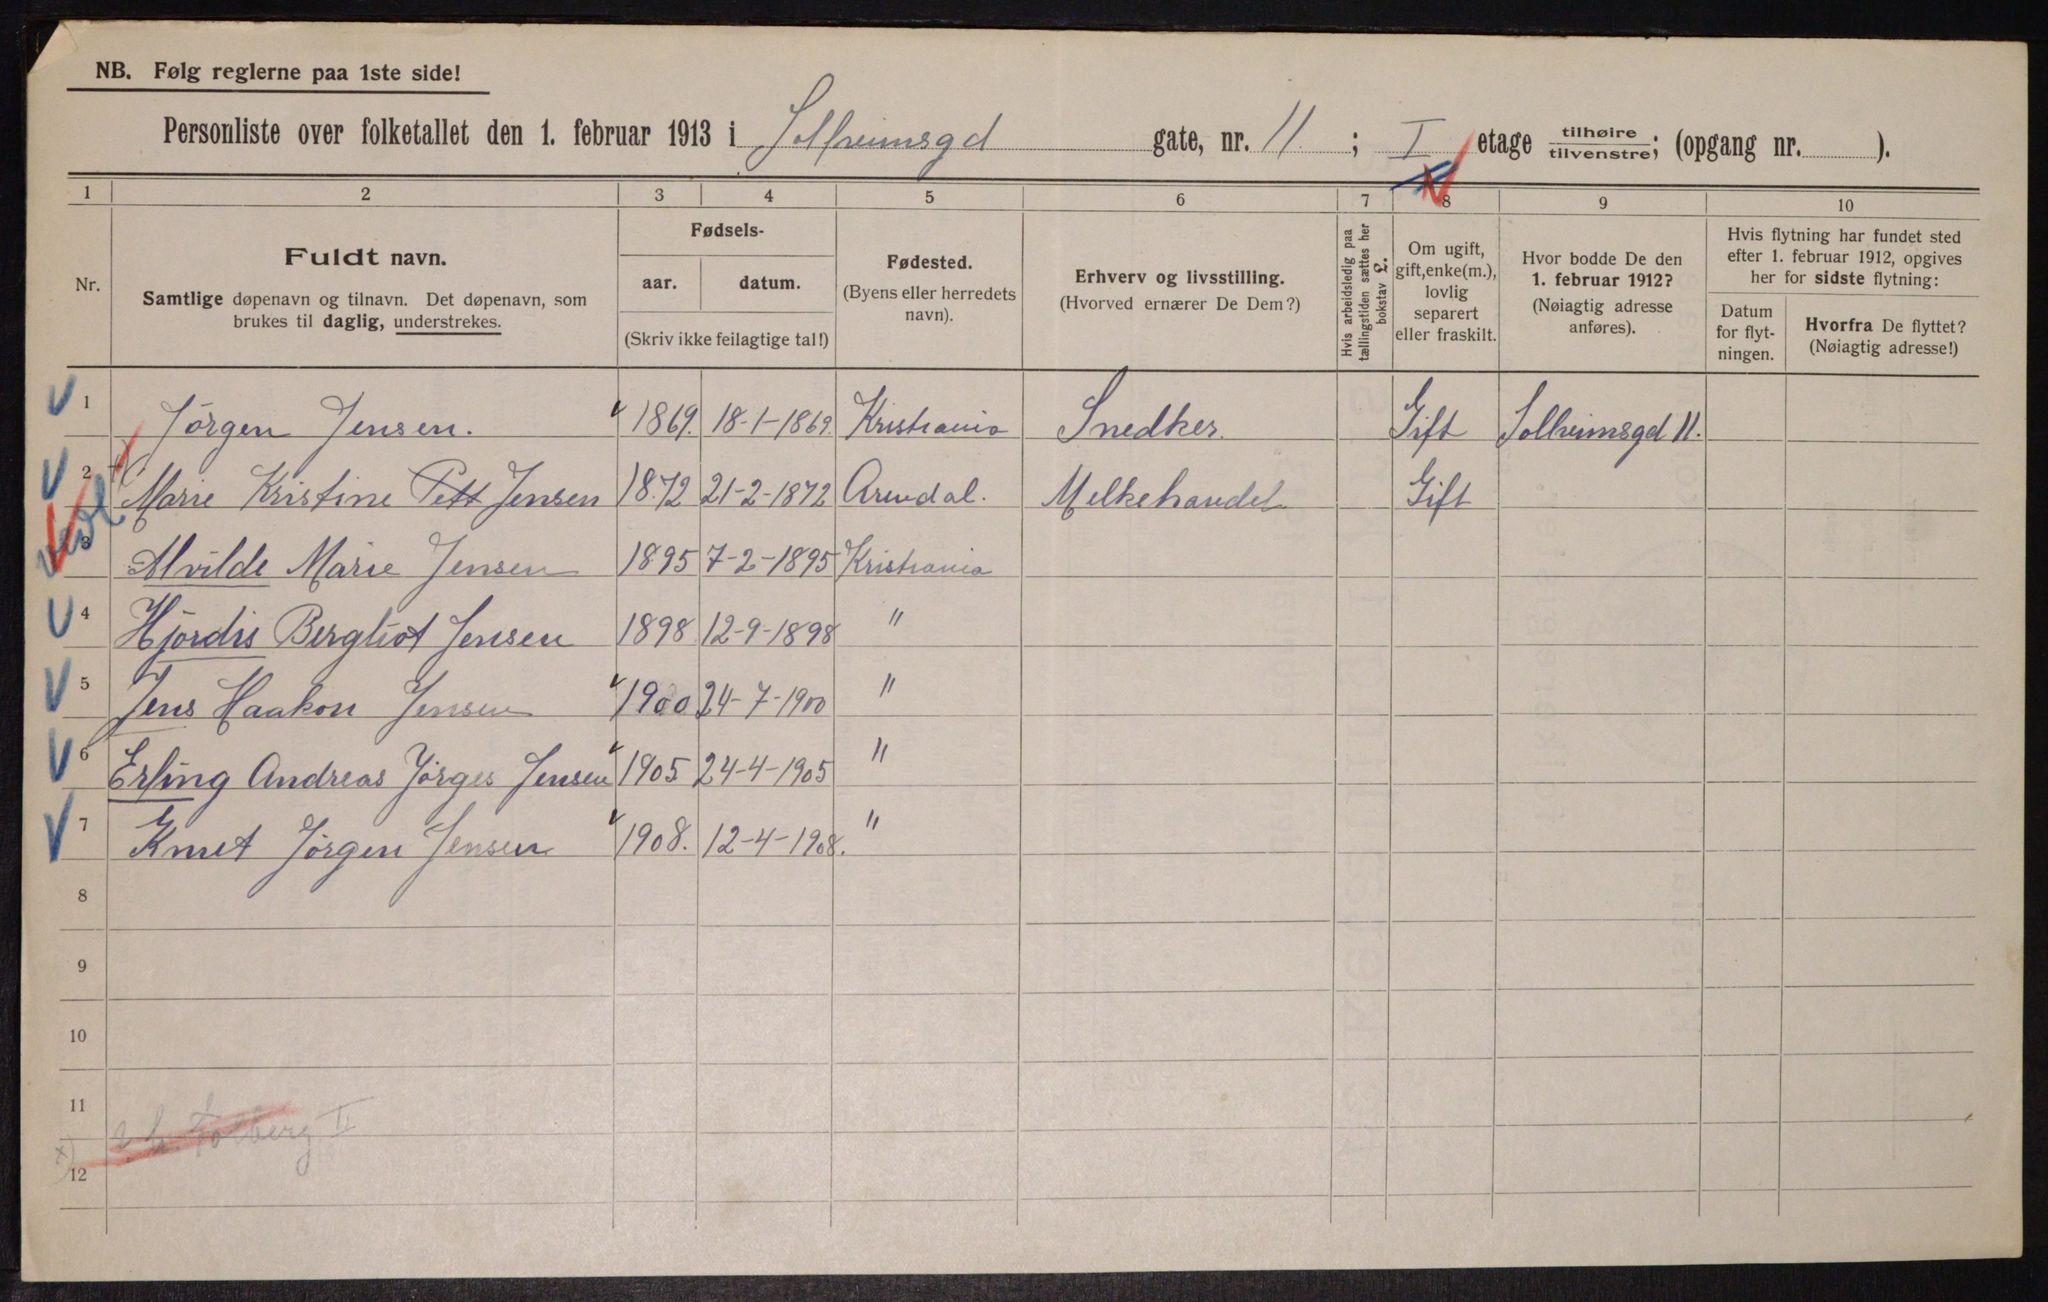 NB. Følg reglerne paa 1ste side!
Personliste over folketallet den 1. februar 1913 i Solheimsgd gate, nr. 11 ; I etage tilhøire tilvenstre; (opgang nr. ).
1 2 3 4 5 6 7 8 9 10
Nr.
Fuldt navn.
Samtlige døpenavn og tilnavn. Det døpenavn, som
brukes til daglig, understrekes.
Fødsels-
aar. datum.
(Skriv ikke feilagtige tal!)
Fødested.
(Byens eller herredets
navn).
Erhverv og livsstilling.
(Hvorved ernærer De Dem?)
Hvis arbeidsledig paa
tællingstiden sættes her
bokstav L.
Om ugift,
gift, enke(m.),
lovlig
separert
eller fraskilt.
Hvor bodde De den
1. februar 1912?
(Nøiagtig adresse
anføres).
Hvis flytning har fundet sted
efter 1. februar 1912, opgives
her for sidste flytning:
Datum
for flyt-
ningen.
Hvorfra De flyttet?
(Nøiagtig adresse!)
1 Jørgen Jensen. 1869. 18-1-1869. Kristiania Snedker. Gift Solheimsgd 11.
2 Marie Kristine Pett Jensen 1872 21-2-1872 Arendal. Melkehandel Gift
3 Alvilde Marie Jensen 1895 7-2-1895 Kristiania
4 Hjördis Bergliot Jensen 1898 12-9-1898 "
5 Jens Haakon Jensen 1900 24-7-1900 "
6 Erling Andreas Jörges Jensen 1905 24-4-1905 "
7 Knut Jørgen Jensen 1908. 12-4-1908. "
8
9
10
11
12
x) Tolberg II